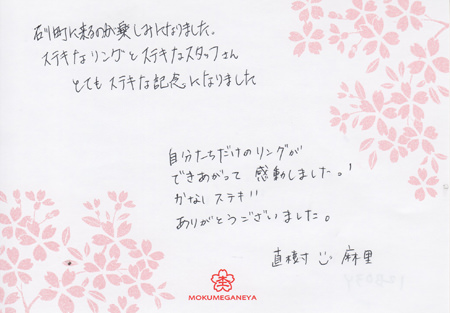 石川町に来るのが楽しみになりました。
ステキなリングとステキなスタッフさん
とても ステキな記念になりました
自分たちだけのリングが
できあがって 感動しました。!
かなりステキ!!
ありがとうございました。
直樹 麻里
MOKUMEGANEYA